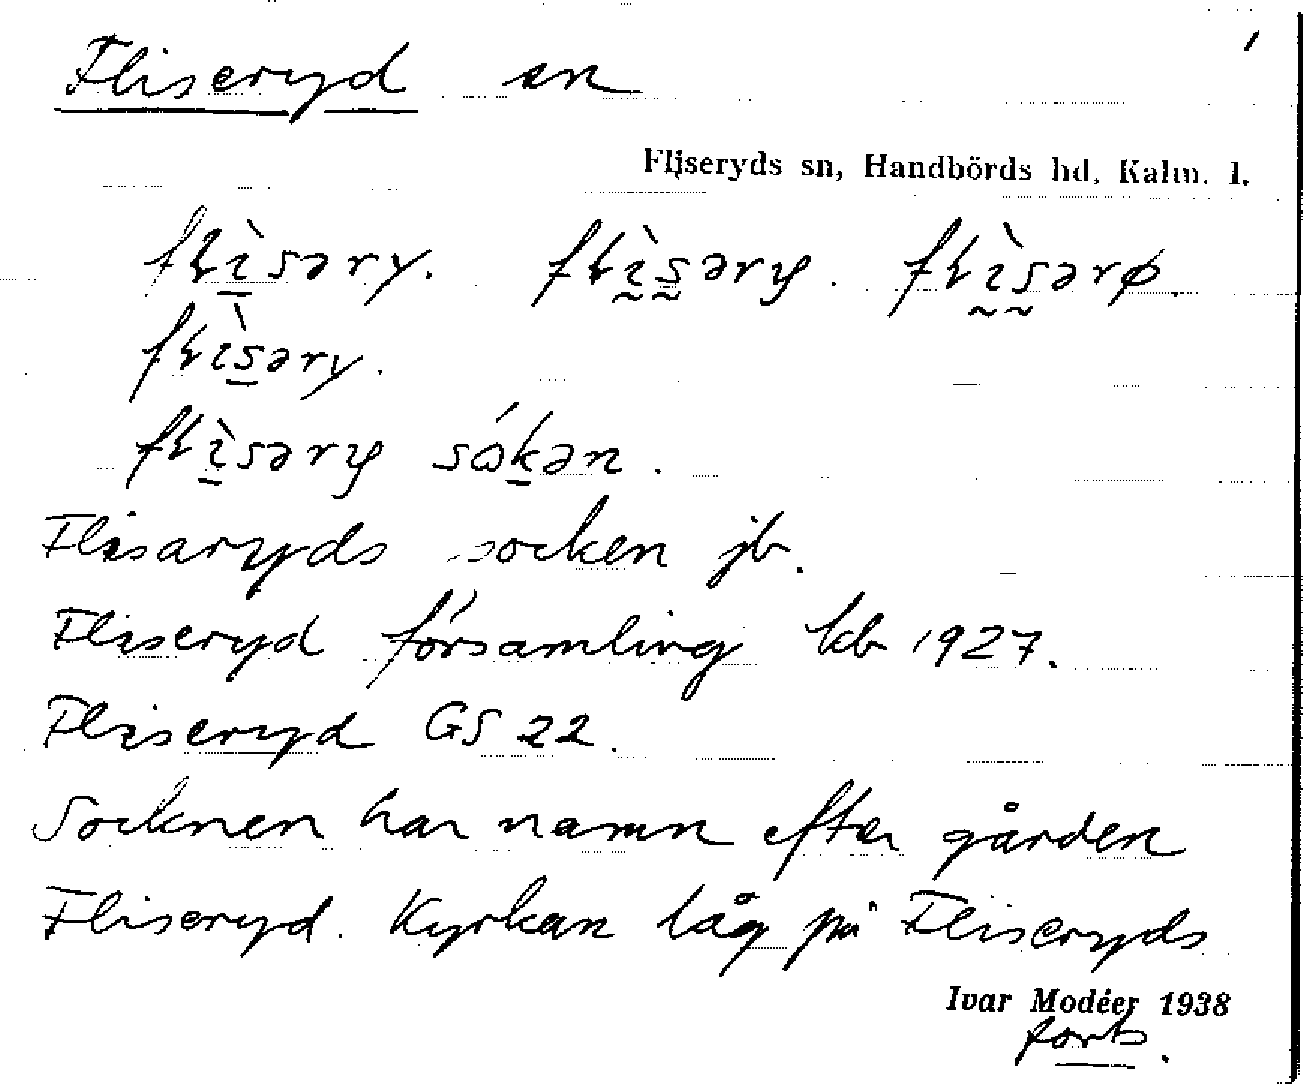 Fliseryd sn
Fliseryds sn, Handbörds hd, Kalm. l.
Flisaryds socken jb.
Fliseryd församling kb 1927.
Fliseryd GS 22.
Socknen har namn efter gården
Fliseryd. Kyrkan låg på Fliseryds
Ivar Modéer 1938
forts.